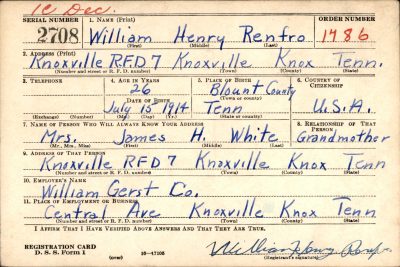 1C Dec.
SERIAL NUMBER 1. NAME (Print) ORDER NUMBER
2708 William Henry Renfro 1786
(First) (Middle) (Last)
2. ADDRESS (Print)
Knoxville RFD 7 Knoxville Knox Tenn.
(Number and street or R. F. D. number) (Town) (County) (State)
3. TELEPHONE 4. AGE IN YEARS 5. PLACE OF BIRTH 6. COUNTRY OF CITIZENSHIP
26 Blount County
(Town or county)
DATE OF BIRTH
July 15 1914 Tenn U.S.A.
(Exchange) (Number) (Mo.) (Day) (Yr.) (State or country)
7. NAME OF PERSON WHO WILL ALWAYS KNOW YOUR ADDRESS 8. RELATIONSHIP OF THAT PERSON
Mrs. James H. White Grandmother
(Mr., Mrs., Miss) (First) (Middle) (Last)
9. ADDRESS OF THAT PERSON
Knoxville RFD 7 Knoxville Knox Tenn
(Number and street or R. F. D. number) (Town) (County) (State)
10. EMPLOYER'S NAME
William Gerst Co.
11. PLACE OF EMPLOYMENT OR BUSINESS
Central Ave Knoxville Knox Tenn
(Number and street or R. F. D. number) (Town) (County) (State)
I AFFIRM THAT I HAVE VERIFIED ABOVE ANSWERS AND THAT THEY ARE TRUE.
REGISTRATION CARD
D. S. S. Form 1 (over) 16—17105 William Henry Renfro
(Registrant's signature)